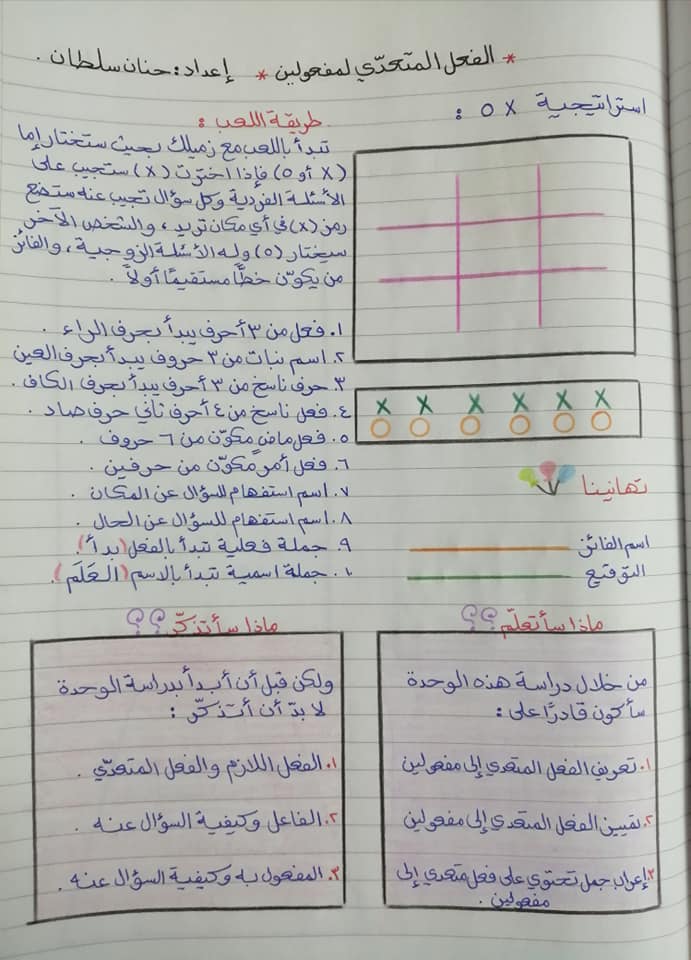 * الفعل المتعدّي لمفعولين * إعداد: حنان سلطان.
استراتيجية X O :
طريقة اللعب :
تبدأ باللعب مع زميلك بحيث ستختار إما
(X أو O) فإذا اخترت (X) ستجيب على
الأسئلة الفردية وكل سؤال تجيب عنه ستضع
رمز (X) في أي مكان تريد، والشخص الآخر
سيختار (O) وله الأسئلة الزوجية، والفائز
من يكوّن خطًّا مستقيمًا أولًا.
١. فعل من ٣ أحرف يبدأ بحرف الراء .
٢. اسم نبات من ٣ حروف يبدأ بحرف العين
٣. حرف ناسخ من ٣ أحرف يبدأ بحرف الكاف .
٤. فعل ناسخ من ٤ أحرف ثاني حرف صاد .
٥. فعل ماضٍ مكوّن من ٦ حروف .
٦. فعل أمر مكوّن من حرفين .
٧. اسم استفهام للسؤال عن المكان .
٨. اسم استفهام للسؤال عن الحال .
٩. جملة فعلية تبدأ بالفعل (بدأ).
١٠. جملة اسمية تبدأ بالاسم (العَلَم).
X X X X X X
O O O O O O
تهانينا
اسم الفائز
التوقيع
ماذا سأتعلّم ؟؟
من خلال دراسة هذه الوحدة
سأكون قادرًا على :
١. تعريف الفعل المتعدي إلى مفعولين
٢. تمييز الفعل المتعدي إلى مفعولين
٣. إعراب جمل تحتوي على فعل متعدي إلى
مفعولين .
ماذا سأتذكّر ؟؟
ولكن قبل أن أبدأ بدراسة الوحدة
لا بدّ أن أتذكّر :
١. الفعل اللازم والفعل المتعدّي .
٢. الفاعل وكيفية السؤال عنه .
٣. المفعول به وكيفية السؤال عنه .